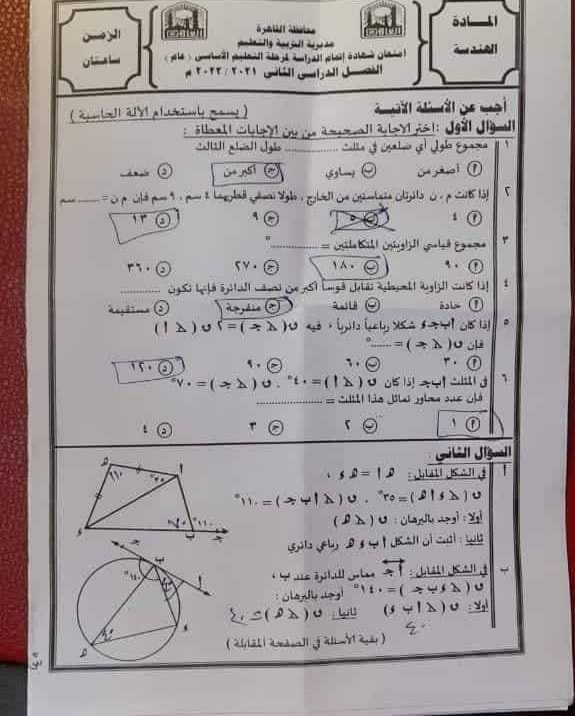 المـــادة
الهندسة
محافظة القاهرة
مديرية التربية والتعليم
امتحان شهادة إتمام الدراسة لمرحلة التعليم الأساسى ( عام )
الفصل الدراسى الثانى ٢٠٢١ / ٢٠٢٢ م
الزمـن
ساعتان
أجب عن الأسئلة الآتيـة ( يسمح باستخدام الآلة الحاسبة )
السؤال الأول : اختر الاجابة الصحيحة من بين الإجابات المعطاة :
١ مجموع طولي أي ضلعين في مثلث ............... طول الضلع الثالث
أ أصغر من ب يساوي ج أكبر من د ضعف
٢ إذا كانت م ، ن دائرتان متماستين من الخارج ، طولا نصفي قطريهما ٤ سم ، ٩ سم فإن م ن = ....... سم
أ ٤ ب ٥ ج ٩ د ١٣
٣ مجموع قياسي الزاويتين المتكاملتين = ...............°
أ ٩٠ ب ١٨٠ ج ٢٧٠ د ٣٦٠
٤ إذا كانت الزاوية المحيطية تقابل قوساً أكبر من نصف الدائرة فإنها تكون ............
أ حادة ب قائمة ج منفرجة د مستقيمة
٥ إذا كان أ ب ج ء شكلا رباعياً دائرياً ، فيه ق ( ∠ ج ) = ٢ ق ( ∠ أ )
فإن ق ( ∠ ج ) = .......°
أ ٣٠ ب ٦٠ ج ٩٠ د ١٢٠
٦ في المثلث أ ب ج إذا كان ق ( ∠ أ ) = ٤٠° ، ق ( ∠ ج ) = ٧٠°
فإن عدد محاور تماثل هذا المثلث = ..................
أ ١ ب ٢ ج ٣ د ٤
السؤال الثاني :
أ في الشكل المقابل : ه أ = ه ء ،
ق ( ∠ ء أ ه ) = ٣٥° ، ق ( ∠ أ ب ج ) = ١١٠°
أولا : أوجد بالبرهان : ق ( ∠ ه )
ثانيا : أثبت أن الشكل أ ب ء ه رباعي دائري
ه أ ١١٠ ٣٥° ٧٠ ١١٠° ء ب ج
ب في الشكل المقابل : أ ج مماس للدائرة عند ب ،
ق ( ∠ ء ب ج ) = ١٤٠° أوجد بالبرهان :
أولا : ق ( ∠ أ ب ء ) ثانيا : ق ( ∠ ه ) = ٤٠
٤٠
ج ب ١٤٠° أ ء ه
( بقية الأسئلة في الصفحة المقابلة )